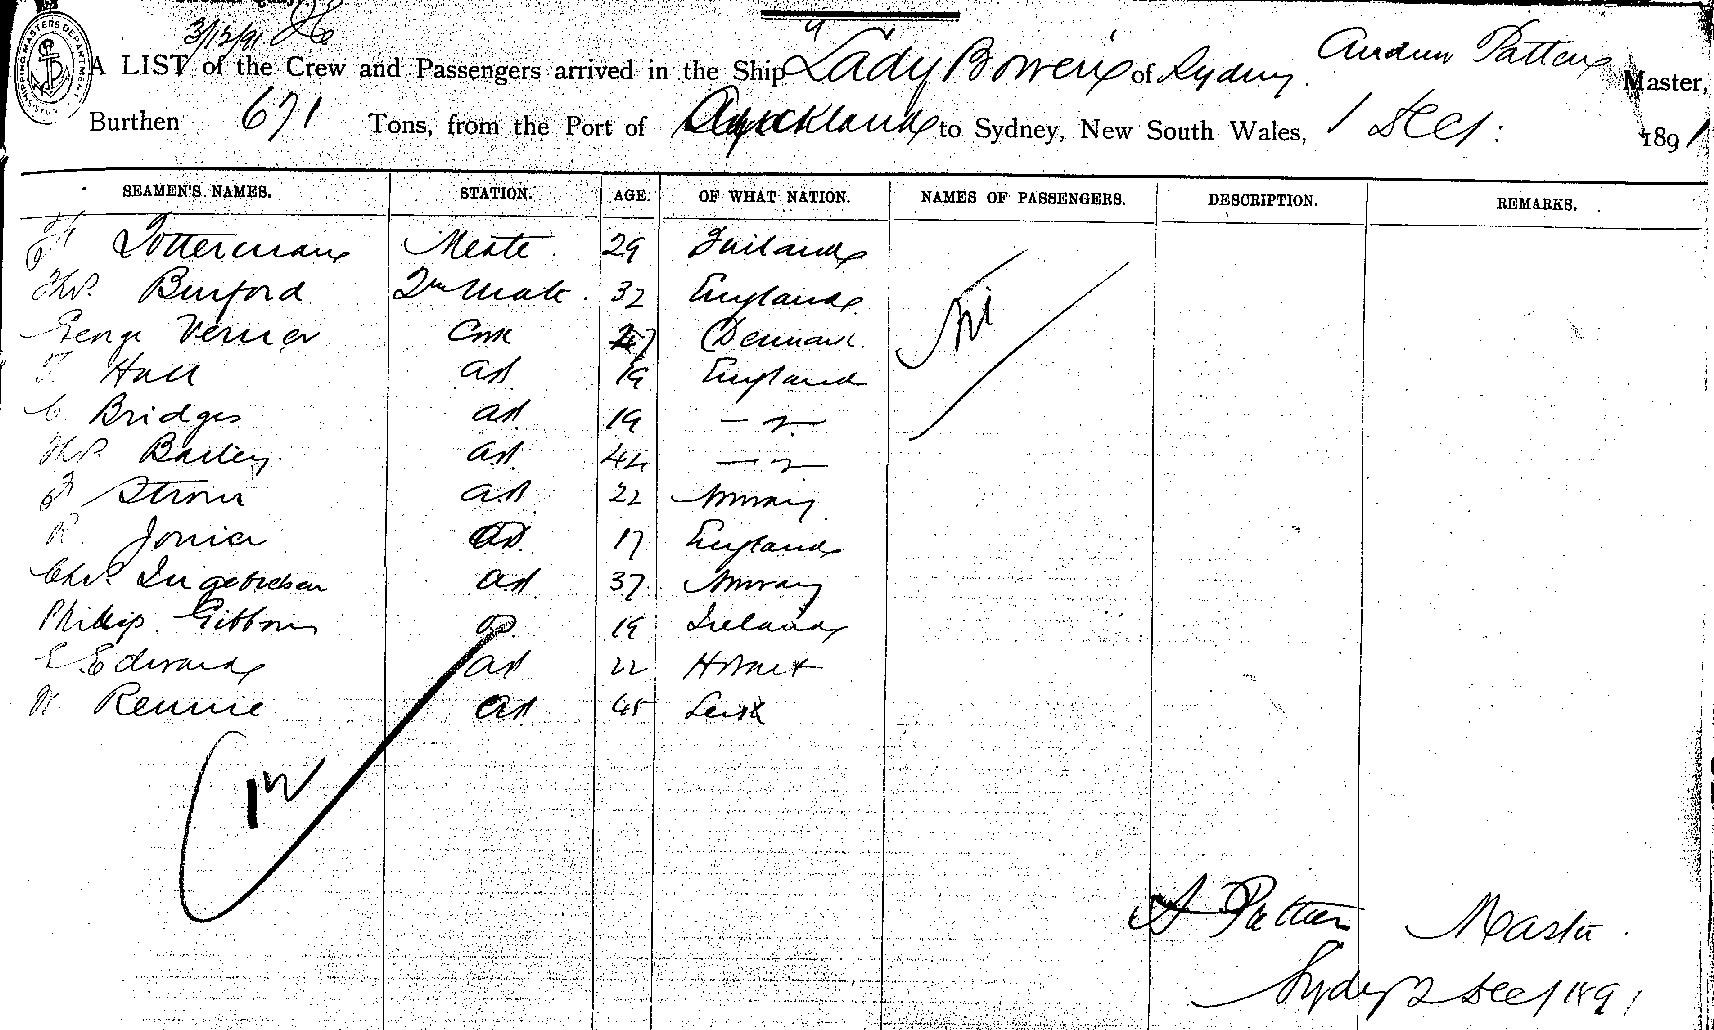 3/12/91
A LIST of the Crew and Passengers arrived in the Ship "Lady Bowen" of Sydney. Andrew Patten Master,
Burthen 671 Tons, from the Port of Auckland to Sydney, New South Wales, 1 Dec: 1891
SEAMEN'S NAMES. STATION. AGE. OF WHAT NATION. NAMES OF PASSENGERS. DESCRIPTION. REMARKS.
Totterman Mate 29 Finland
Thos. Burford 2nd Mate 32 England
George Verner Cook Denmark Nil
Hall AB 19 England
C Bridges AB 19 — " —
Thos. Bailey AB 44 — " —
Strom AB 22 Norway
R Jonier AB 17 England
Chr. Ingebretsen AB 37 Norway
Philip Gibbons OS 19 Ireland
E Edwards AB 22 Hobart
W Rennie AB 45 Leith
12
A Patten Master
Sydney 2 Dec/1891